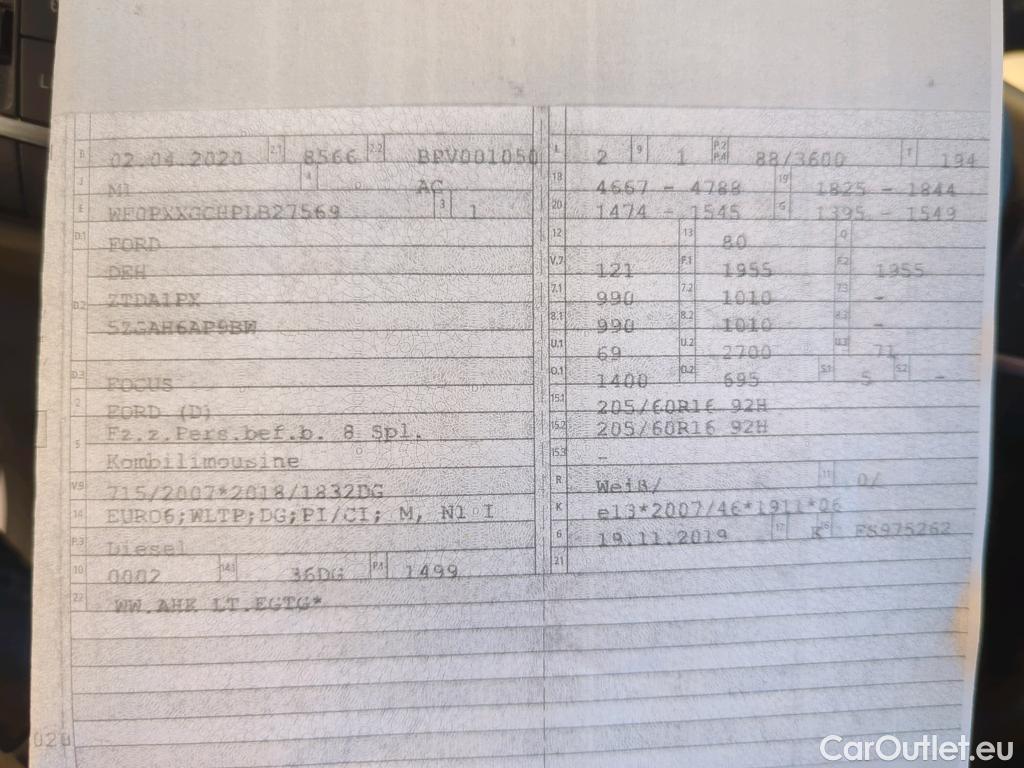 B 02.04.2020 2.1 8566 2.2 BPV001050
J M1 4 AC
E WF0PXXGCHPLB27569 3 1
D.1 FORD
DEH
D.2 ZTDA1PX
5ZGAH6AP9BW
D.3 FOCUS
2 FORD (D)
5 Fz.z.Pers.bef.b. 8 Spl.
Kombilimousine
V.9 715/2007*2018/1832DG
14 EURO6;WLTP;DG;PI/CI; M, N1 I
P.3 Diesel
10 0002 14.1 36DG P.1 1499
22 WW.AHK LT.EGTG*
L 2 9 1 P.2 P.4 88/3600 T 194
18 4667 - 4788 19 1825 - 1844
20 1474 - 1545 G 1395 - 1549
12 13 80 Q
V.7 121 F.1 1955 F.2 1955
7.1 990 7.2 1010 7.3 -
8.1 990 8.2 1010 8.3 -
U.1 69 U.2 2700 U.3 71
O.1 1400 O.2 695 S.1 5 S.2 -
15.1 205/60R16 92H
15.2 205/60R16 92H
15.3 -
R Weiß/ 11 0/
K e13*2007/46*1911*06
6 19.11.2019 17 K 16 FS975262
21
020
CarOutlet.eu